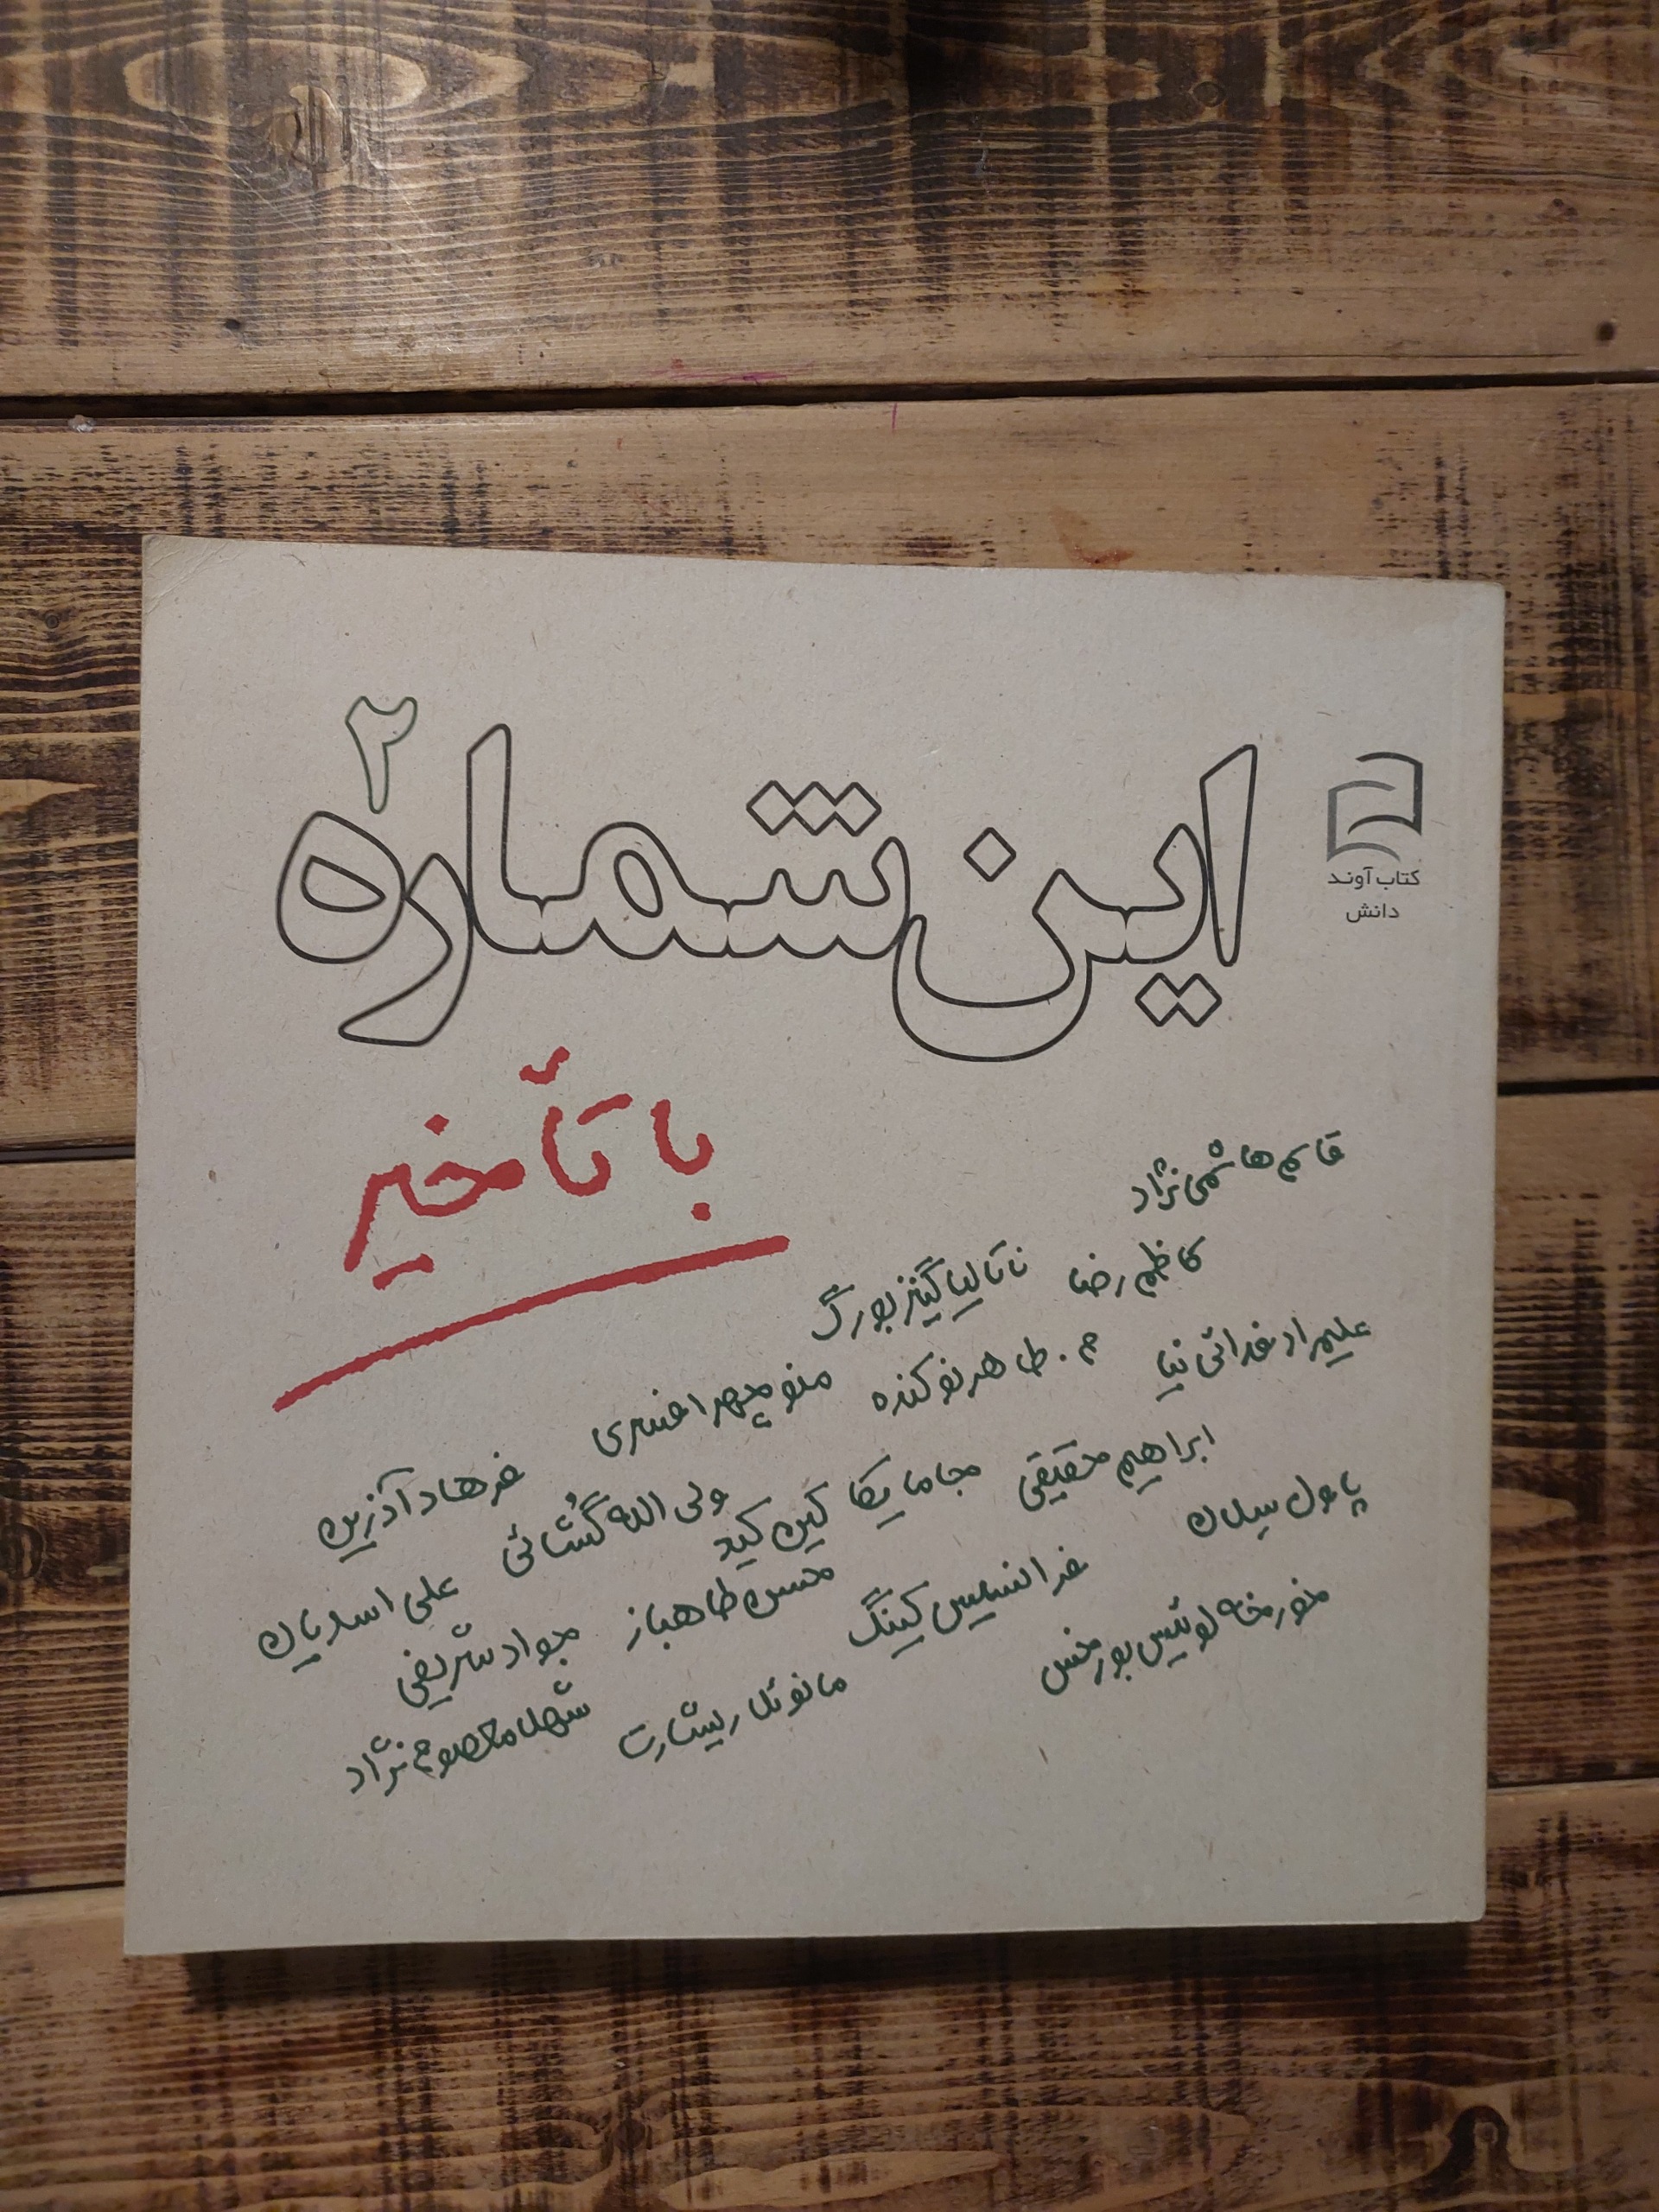 این شماره ۲
کتاب آوند
دانش
با تأخیر
قاسم هاشمی‌نژاد
کاظم رضا ناتالیا گینزبورگ
علیمراد فدائی‌نیا م. طاهر نوکنده منوچهر افسری فرهاد آذرین
ابراهیم حقیقی جامایکا کین کید ولی الله گشائی علی اسدیان
پاول سلان فرانسیس کینگ محسن طاهباز جواد شریفی
خورخه لوئیس بورخس مانوئل ریشارت شهلا معصوم‌نژاد